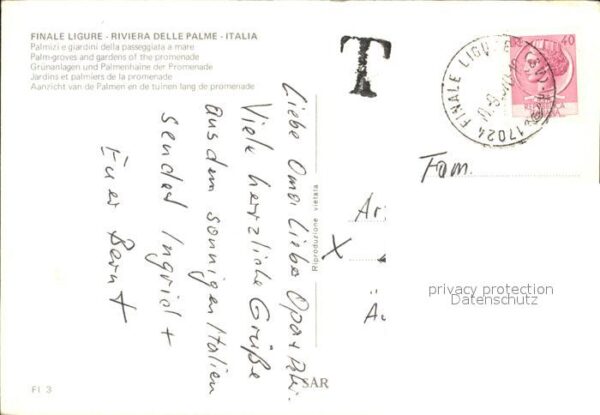 FINALE LIGURE - RIVIERA DELLE PALME - ITALIA
Palmizi e giardini della passeggiata a mare
Palm-groves and gardens of the promenade
Grünanlagen und Palmenhaine der Promenade
Jardins et palmiers de la promenade
Aanzicht van de Palmen en de tuinen lang de promenade
T
17024 FINALE LIGURE
40
Liebe Oma Liebe Opa +
Viele herzliche Grüße
aus dem sonnigen Italien
sendet Ingrid +
Euer Bernt
Riproduzione vietata
Fam.
X
privacy protection
Datenschutz
SAR
FI 3